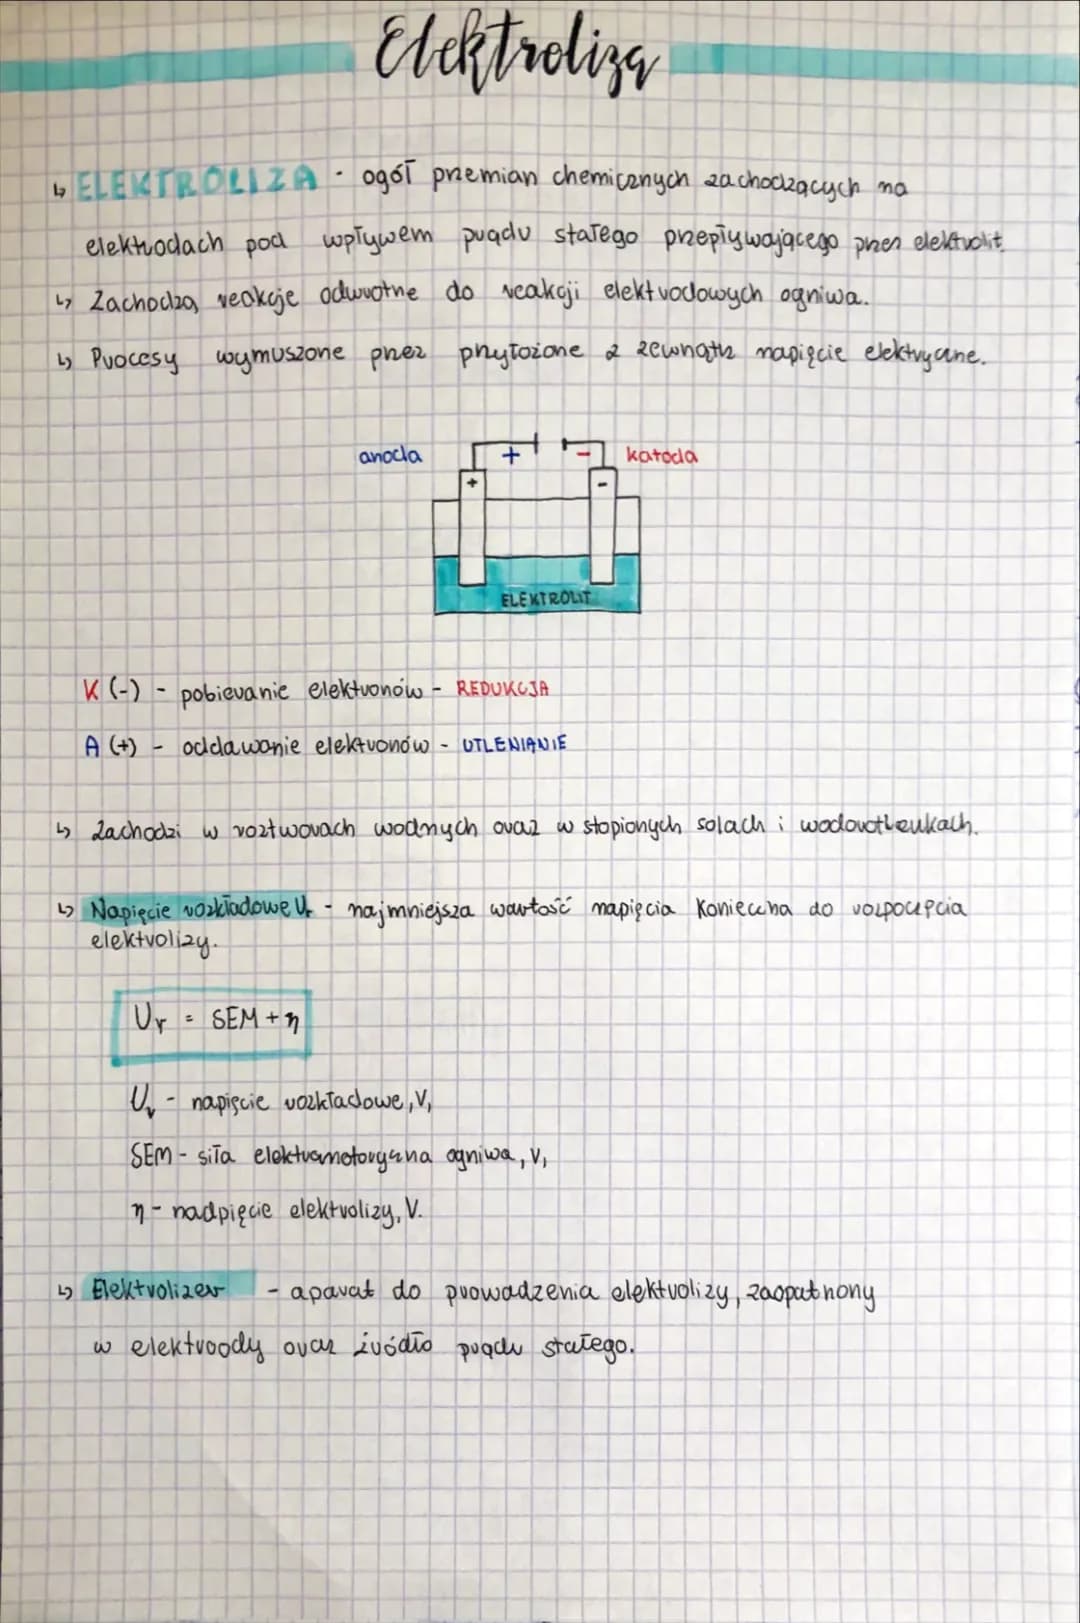 Elektroliza
↳ ELEKTROLIZA - ogół przemian chemicznych zachodzących na
elektrodach pod wpływem prądu stałego przepływającego przez elektrolit.
↳ Zachodzą reakcje odwrotne do reakcji elektrodowych ogniwa.
↳ Procesy wymuszone przez przyłożone z zewnątrz napięcie elektryczne.
anoda + - katoda
+ -
ELEKTROLIT
K (-) - pobieranie elektronów - REDUKCJA
A (+) - oddawanie elektronów - UTLENIANIE
↳ Zachodzi w roztworach wodnych oraz w stopionych solach i wodorotlenkach.
↳ Napięcie rozkładowe Ur - najmniejsza wartość napięcia konieczna do rozpoczęcia
elektrolizy.
Ur = SEM + η
Ur - napięcie rozkładowe, V,
SEM - siła elektromotoryczna ogniwa, V,
η - nadpięcie elektrolizy, V.
↳ Elektrolizer - aparat do prowadzenia elektrolizy, zaopatrzony
w elektroody oraz źródło prądu stałego.